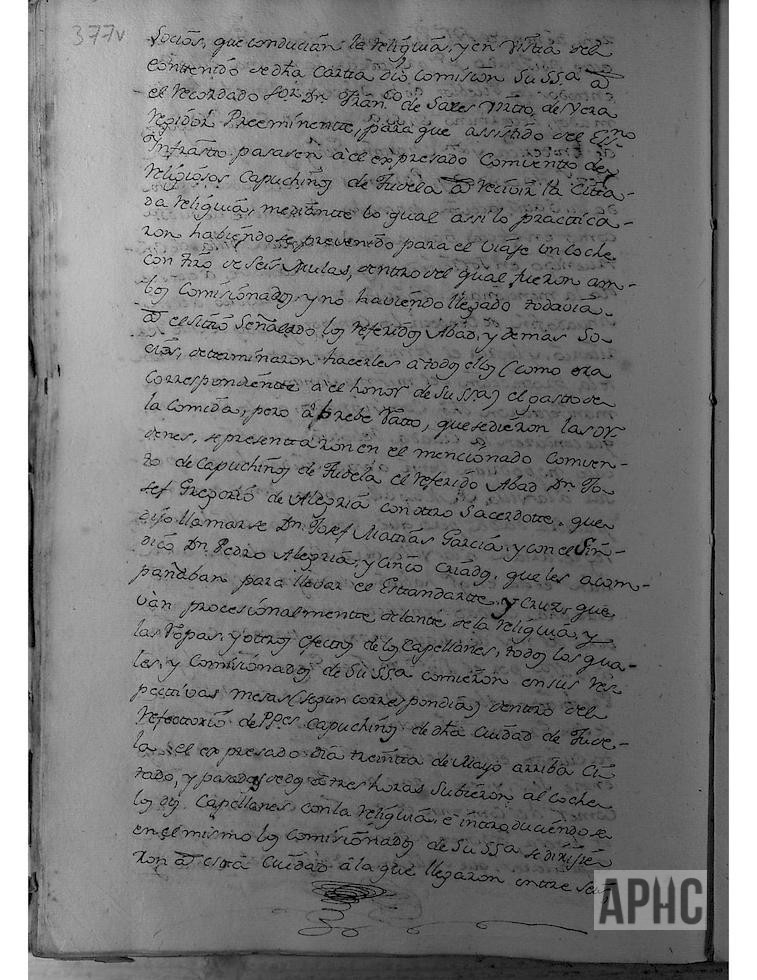 377v
Socios, que conducian la reliquia, y en vista del
contenido de dha Carta dio comision Su Ssa a
el recordado Sor Dn Franco de Sales Vrtto, de Vera
Regidor Preeminente, para que assistido del Essno
Infrastto pasasen a el expresado Combento de
Religiosos Capuchinos de Tudela a recivir la Citta-
da reliquia, mediante lo qual assi lo practica-
ron haviendose prevenido para el viaje un coche
con tiro de seis Mulas, dentro del qual fueron am-
bos Comisionados, y no haviendo llegado todavia
a el sitio Señalado los referidos Abad, y demas So
cios, determinaron hacerles a todos ellos (como era
correspondiente a el honor de Su Ssa) el gasto de
la Comida, pero a brebe ratto, que se dieron las or-
denes, se presentaron en el mencionado Comven-
to de Capuchinos de Tudela el referido Abad Dn Jo-
sef Gregorio de Alegria con otro Sacerdotte, que
dijo llamarse Dn Josef Mattias Garcia, y con el Sin-
dico Dn Pedro Alegria, y cinco criados, que les acom-
pañaban para llevar el Esttandartte, y Cruz, que
van procesionalmente delante de la reliquia, y
las ropas, y ottros efecttos de los Capellanes, todos los qua-
les, y Comisionados de Su Ssa comieron en sus res-
pectivas mesas (segun correspondia) dentro del
refectorio de PPes Capuchinos de dha Ciudad de Tude-
la el expresado dia treintta de Mayo arriba Ci
tado, y pasadas de dos a tres horas subieron al coche
los dos Capellanes con la reliquia, e introduciendose
en el mismo los Comisionados de Su Ssa se dirijie-
ron a estta Ciudad a la que llegaron entre seis
APHC